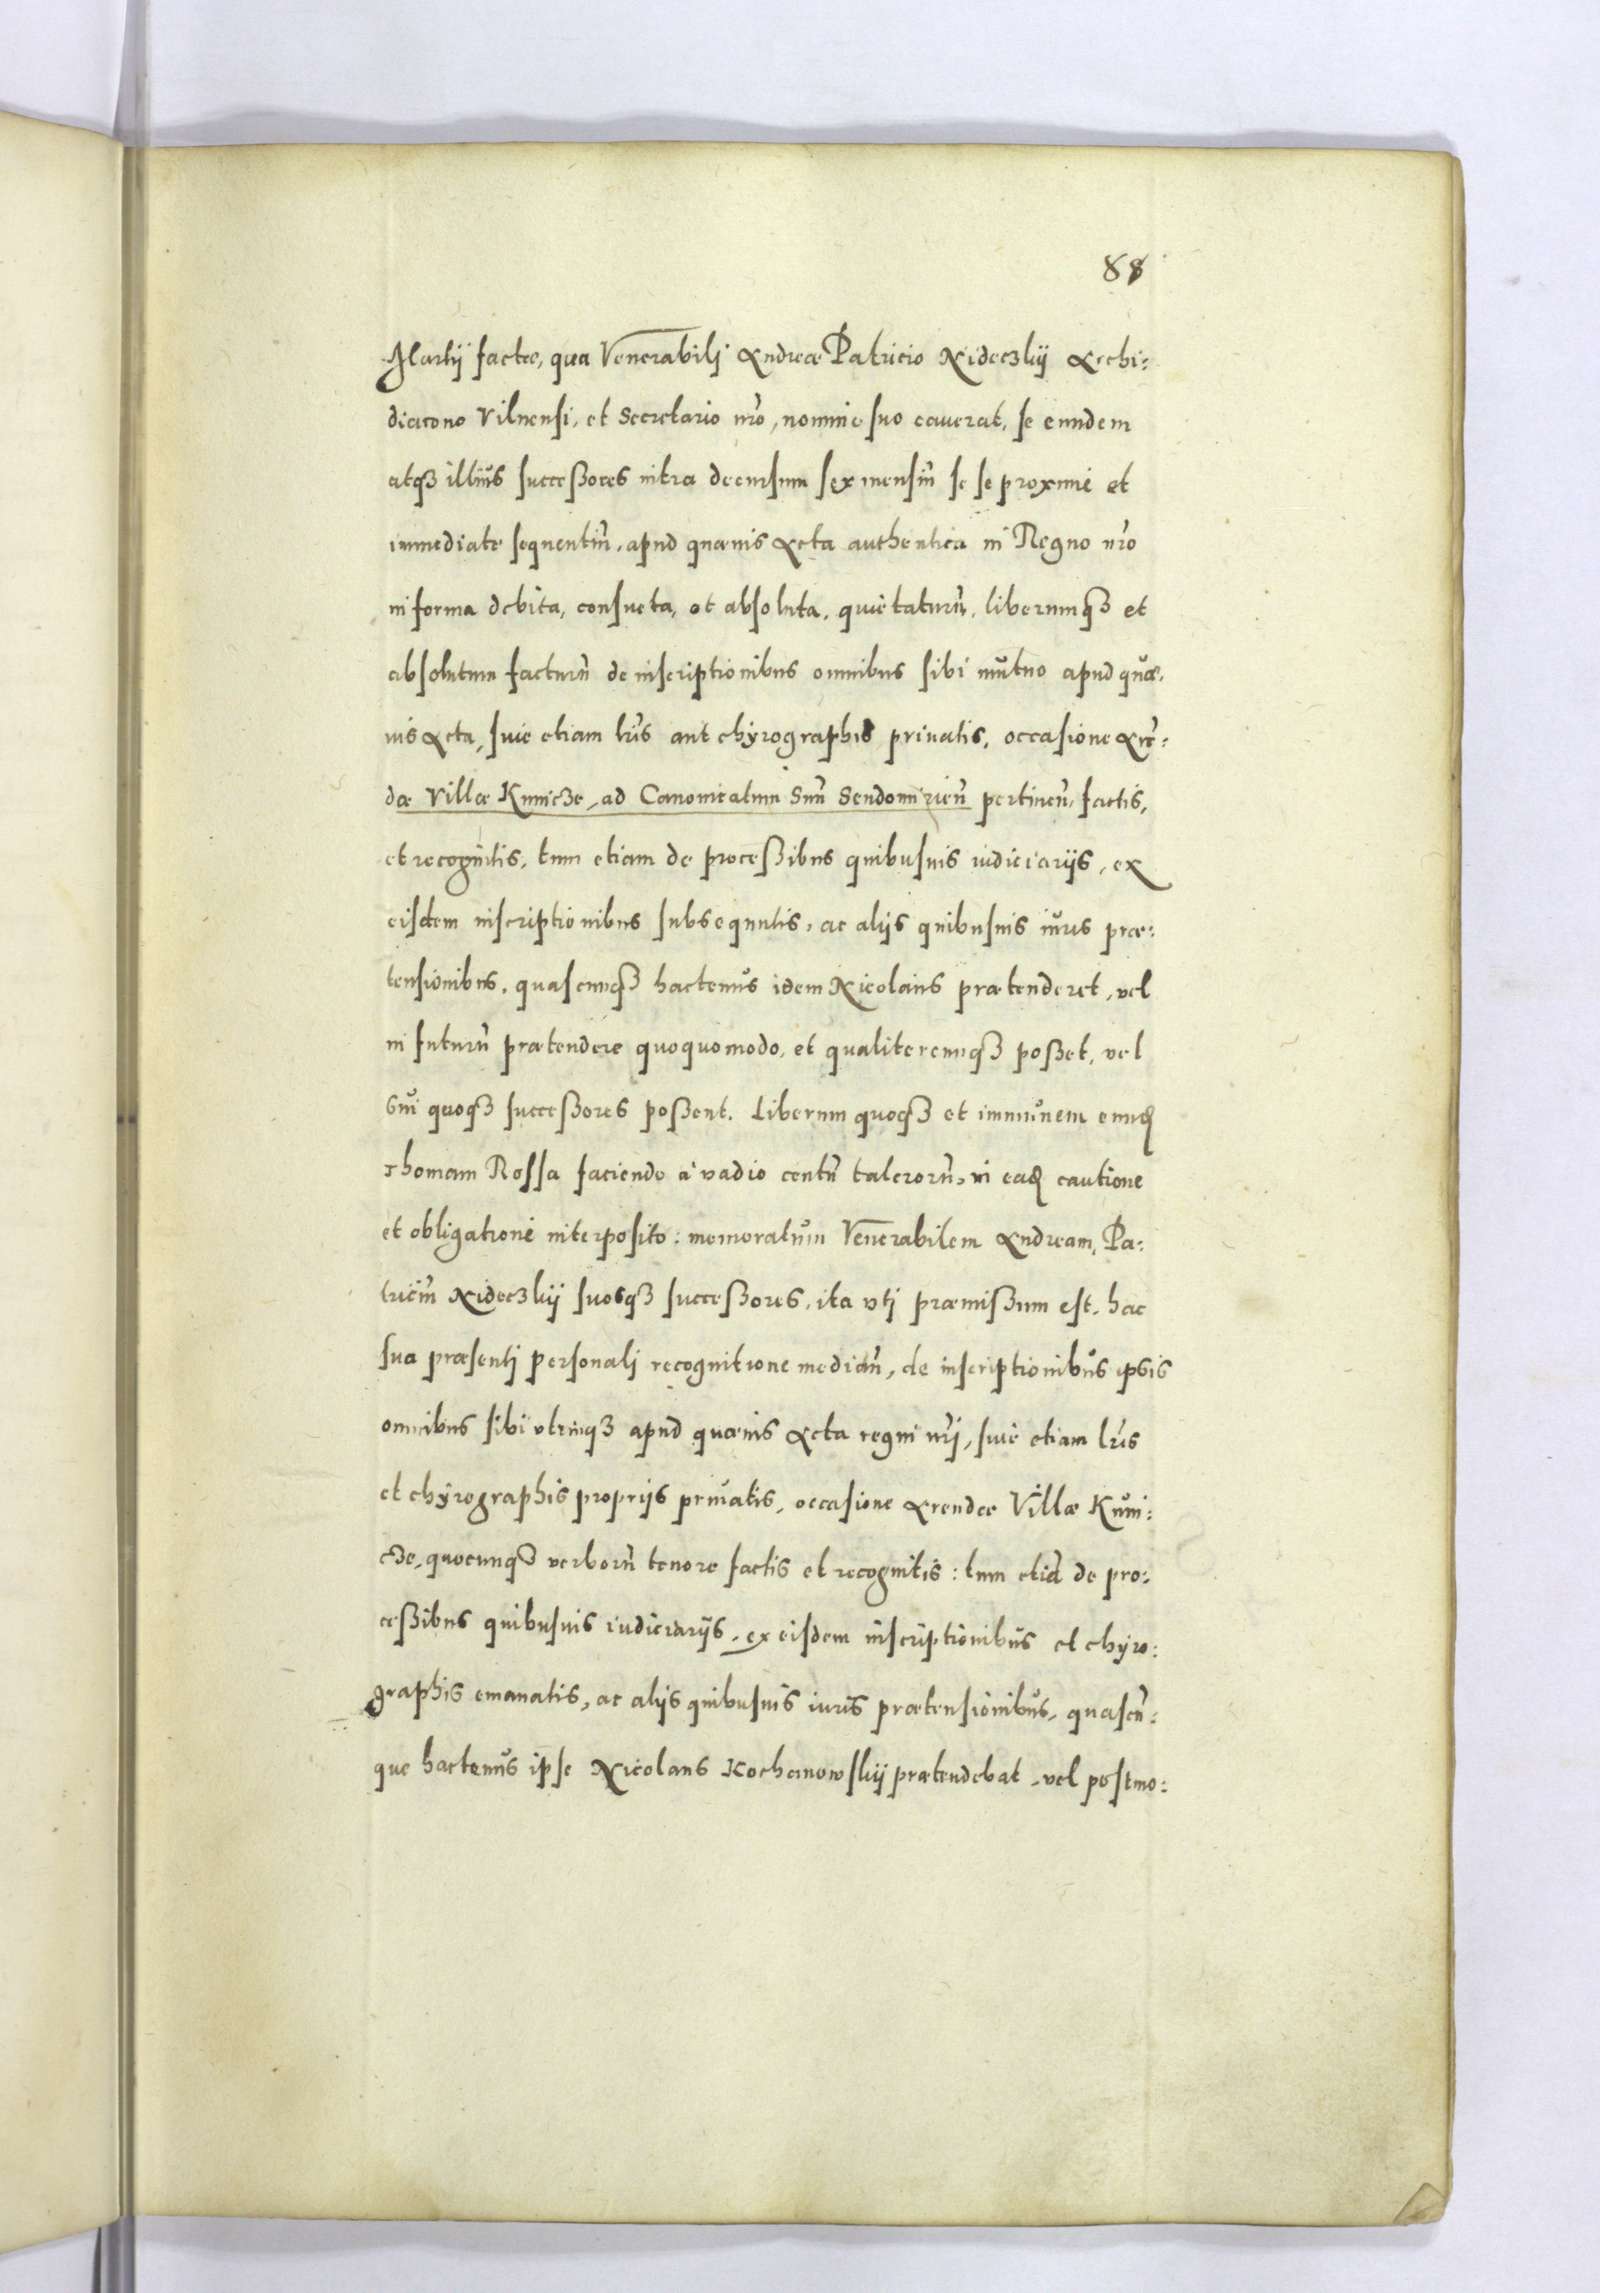 88
Martij factae, qua Venerabilj Andreae Patricio Nideczkij Archi:
diacono Vilnensi, et Secretario nr̃o, nomine suo cauerat, se eundem
atqȝ illius successores intra decursum sex mensiũ se se proxime et
immediate sequentiũ, apud quaeuis Acta authentica in Regno nr̃o
in forma debita, consueta, et absoluta, quietaturũ, liberumqȝ et
absolutum facturũ de inscriptionibus omnibus sibi mutuo apud quae,
uis Acta, siue etiam lr̃is aut chyrographis priuatis, occasione Arẽ:
dae Villae Kunicze, ad Canonicatum Suũ Sendomirieñ pertineñ, factis,
et recognitis, tum etiam de processibus quibusuis iudiciarijs, ex
eisdem inscriptionibus subsequutis, ac alijs quibusuis iuris prae:
tensionibus, quascunqȝ hactenus idem Nicolaus praetenderet, vel
in futurũ praetendere quoquomodo, et qualitercunqȝ posset, vel
Sui quoqȝ successores possent. Liberum quoqȝ et immunem eundẽ
Thomam Rossa faciendo à vadio centũ talerorũ, in eadẽ cautione
et obligatione interposito: memoratum Venerabilem Andream, Pa:
triciũ Nideczkij suosqȝ successores, ita vtj praemissum est, hac
sua praesentj personalj recognitione mediañ, de inscriptionibus ipsis
omnibus sibi vtrinqȝ apud quaeuis Acta regni nr̃j, siue etiam lr̃is
et chyrographis proprijs priuatis, occasione Arendae Villae Kuni:
cze, quocunqȝ verborũ tenore factis et recognitis: tum etiã de pro:
cessibus quibusuis iudiciarijs, ex eisdem inscriptionibus et chyro:
graphis emanatis, ac alijs quibusuis iuris praetensionibus, quascũ:
que hactenus ipse Nicolaus Kochanowskij praetendebat, vel postmo: